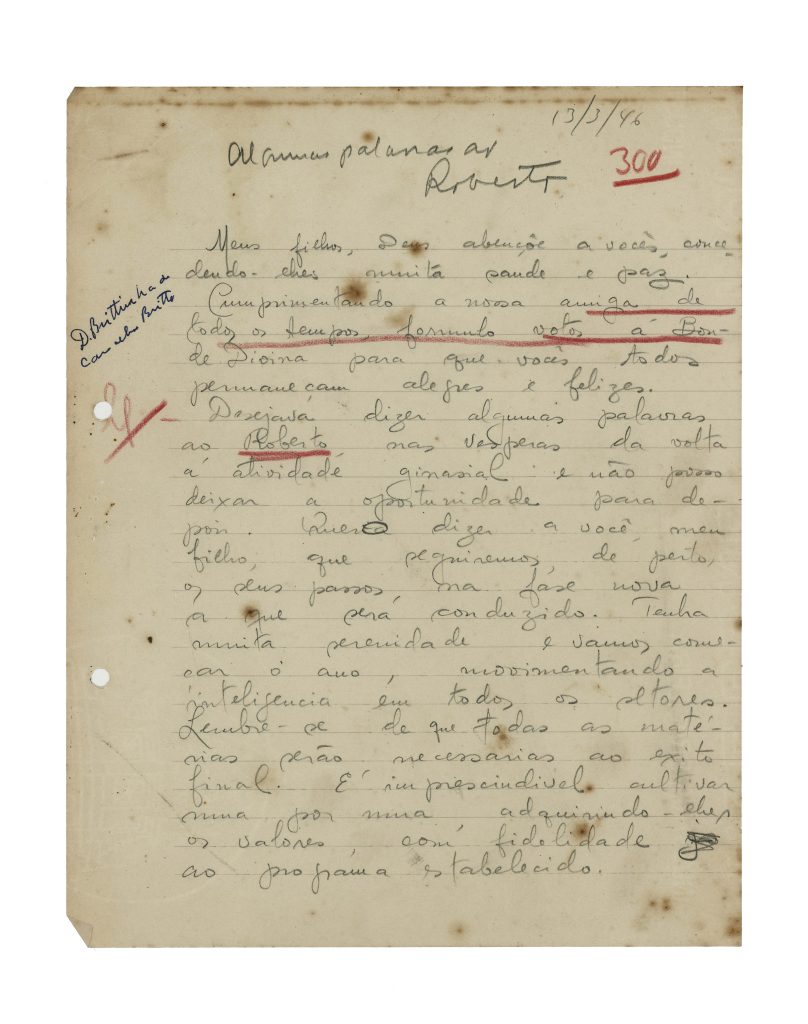 13/3/46
Algumas palavras ao
Roberto
300
Meus filhos, Deus abençôe a vocês, conce-
dendo-lhes muita saude e paz.
D. Brittinha de
Carvalho Britto
Cumprimentando a nossa amiga de
todos os tempos, formulo votos á Bon-
de Divina para que vocês todos
permaneçam alegres e felizes.
Desejava dizer algumas palavras
ao Roberto, nas vesperas da volta
á atividade ginasial e não posso
deixar a oportunidade para de-
pois. Quero dizer a você, meu
filho, que seguiremos, de perto,
os seus passos, na fase nova
á que será conduzido. Tenha
muita serenidade e vamos come-
çar o ano, movimentando a
inteligencia em todos os setores.
Lembre-se de que todas as maté-
rias serão necessarias ao exito
final. É imprescindivel cultivar
uma por uma adquirindo-lhes
os valores, com fidelidade
ao programa estabelecido.